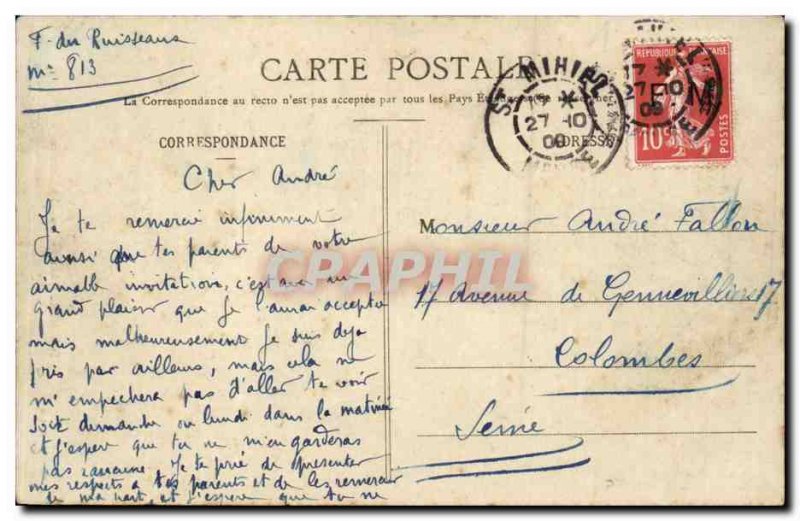 F. du Ruisseau
N° 813
CARTE POSTALE
La Correspondance au recto n'est pas acceptée par tous les Pays
CORRESPONDANCE
ADRESSE
Cher André
Je te remercie infiniment
ainsi que tes parents de votre
aimable invitation, c'est avec un
grand plaisir que je l'aurai accepté
mais malheureusement je suis deja
pris par ailleurs, mais cela ne
m'empechera pas d'aller te voir
soit dimanche ou lundi dans la matinée
et j'esper que tu ne m'en garderas
pas rancune. Je te prie de presenter
mes respects a tes parents et de les remercier
de ma part, et j'espere que tu ne
Monsieur André Fallon
17 Avenue de Gennevilliers 17
Colombes
Seine
ST MIHIEL
27 -10
09
MEUSE
REPUBLIQUE FRANÇAISE
F M
10c
POSTES
27 -10
09
CPRAPHIL